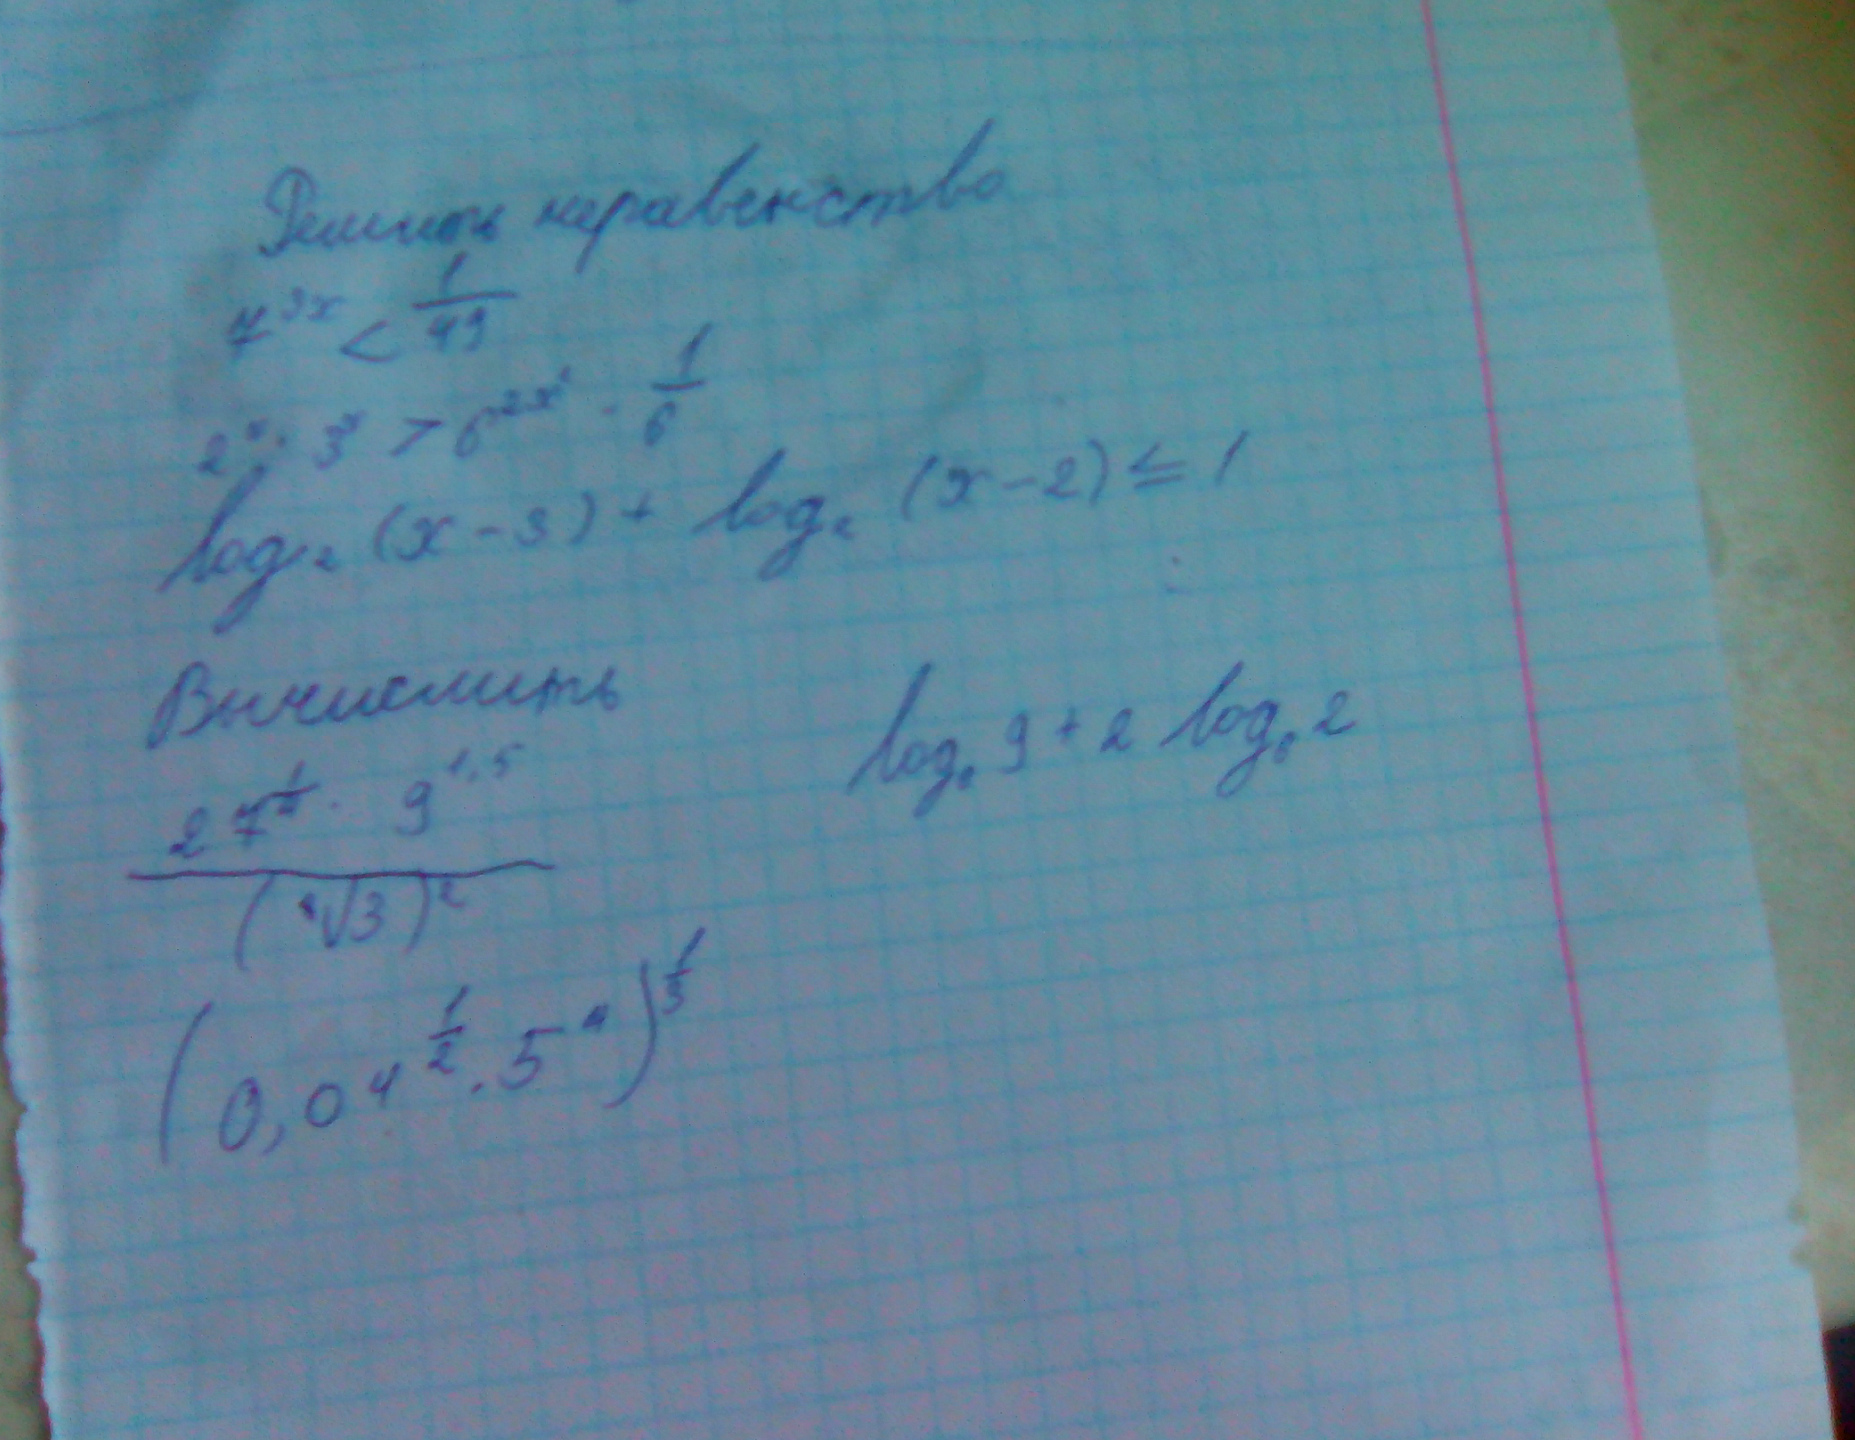 Решить неравенство
7^{3x} < \frac{1}{49}
2^x · 3^x > 6^{2x^2} · \frac{1}{6}
log_2 (x-3) + log_2 (x-2) ≤ 1
Вычислить
\frac{27^{\frac{1}{4}} · 9^{1,5}}{(\sqrt[8]{3})^2}
log_6 9 + 2 log_6 2
(0,04^{\frac{1}{2}} · 5^4)^{\frac{1}{3}}